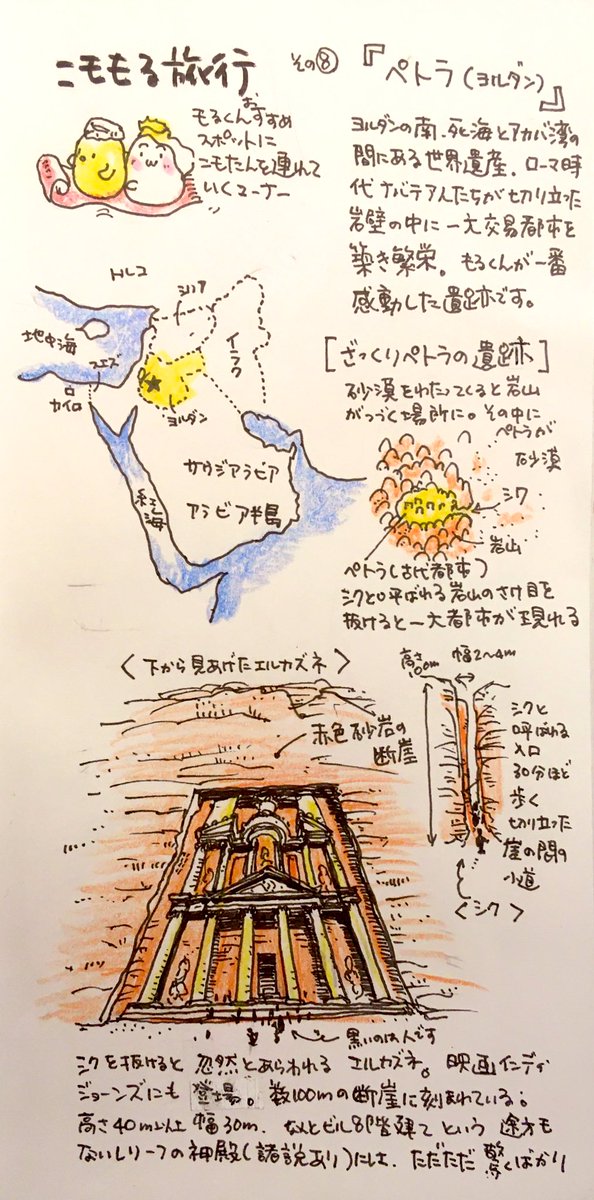 こももる旅行 その⑧ 『ペトラ(ヨルダン)』
もるくんおすすめ
スポットに
こもたんを連れて
いくコーナー
ヨルダンの南、死海とアカバ湾の
間にある世界遺産。ローマ時
代ナバテア人たちが切り立った
岩壁の中に一大交易都市を
築き繁栄。もるくんが一番
感動した遺跡です。
トルコ
シリア
イラク
地中海
スエズ
カイロ
ヨルダン
サウジアラビア
アラビア半島
紅海
[ざっくりペトラの遺跡]
砂漠をわたってくると岩山
がつづく場所に。その中に
ペトラが
砂漠
シク
岩山
ペトラ(古代都市)
シクと呼ばれる岩山のさけ目を
抜けると一大都市が現れる
<下から見あげたエルカズネ>
赤色砂岩の
断崖
高さ
100m
幅2〜4m
シクと
呼ばれる
入口
30分ほど
歩く
切り立った
崖の間の
小道
<シク>
黒いのは人です
シクを抜けると忽然とあらわれるエルカズネ。映画インディ
ジョーンズにも登場。数100mの断崖に刻まれている。
高さ40m以上幅30m、なんとビル8階建てという途方も
ないレリーフの神殿(諸説あり)には、ただただ驚くばかり